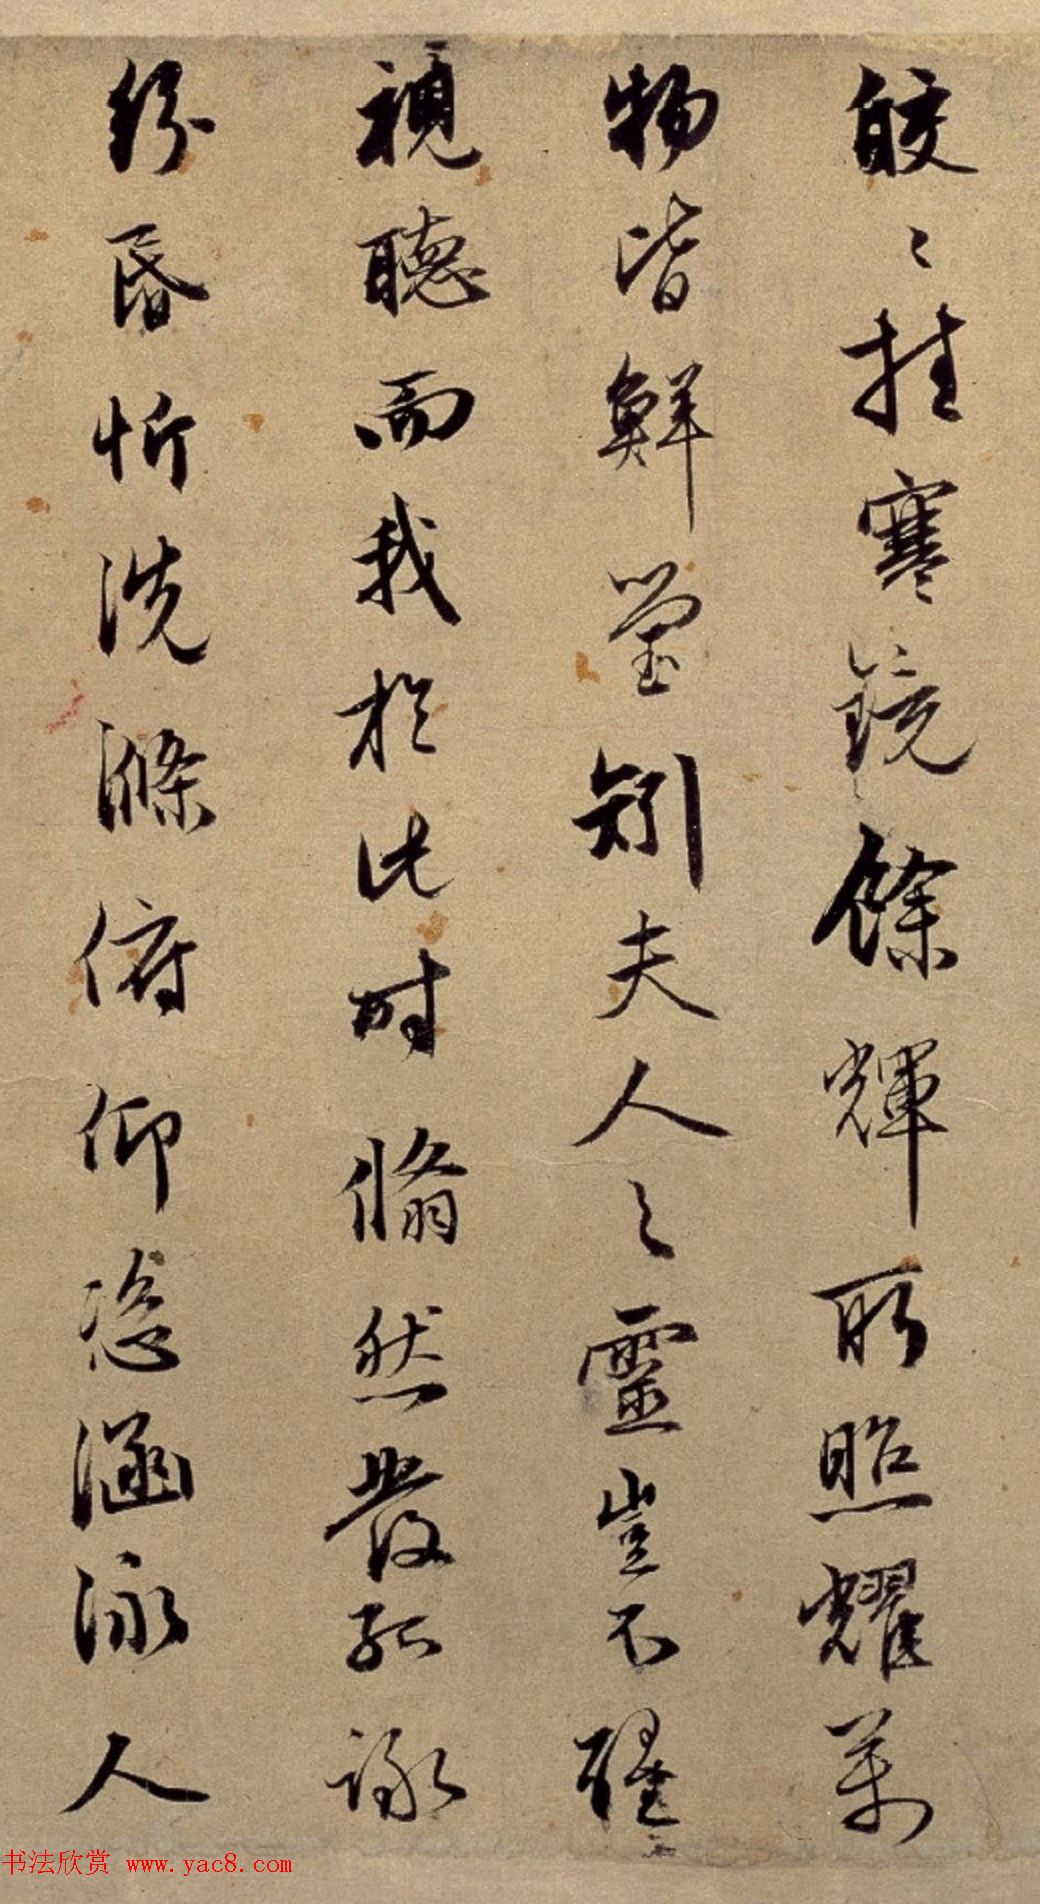 皎〻挂寒鏡餘輝所照耀萬
物皆鮮瑩矧夫人之靈豈不醒
視聽而我於此時翛然發孤詠
紛昏忻洗滌俯仰恣涵泳人
书法欣赏 www.yac8.com